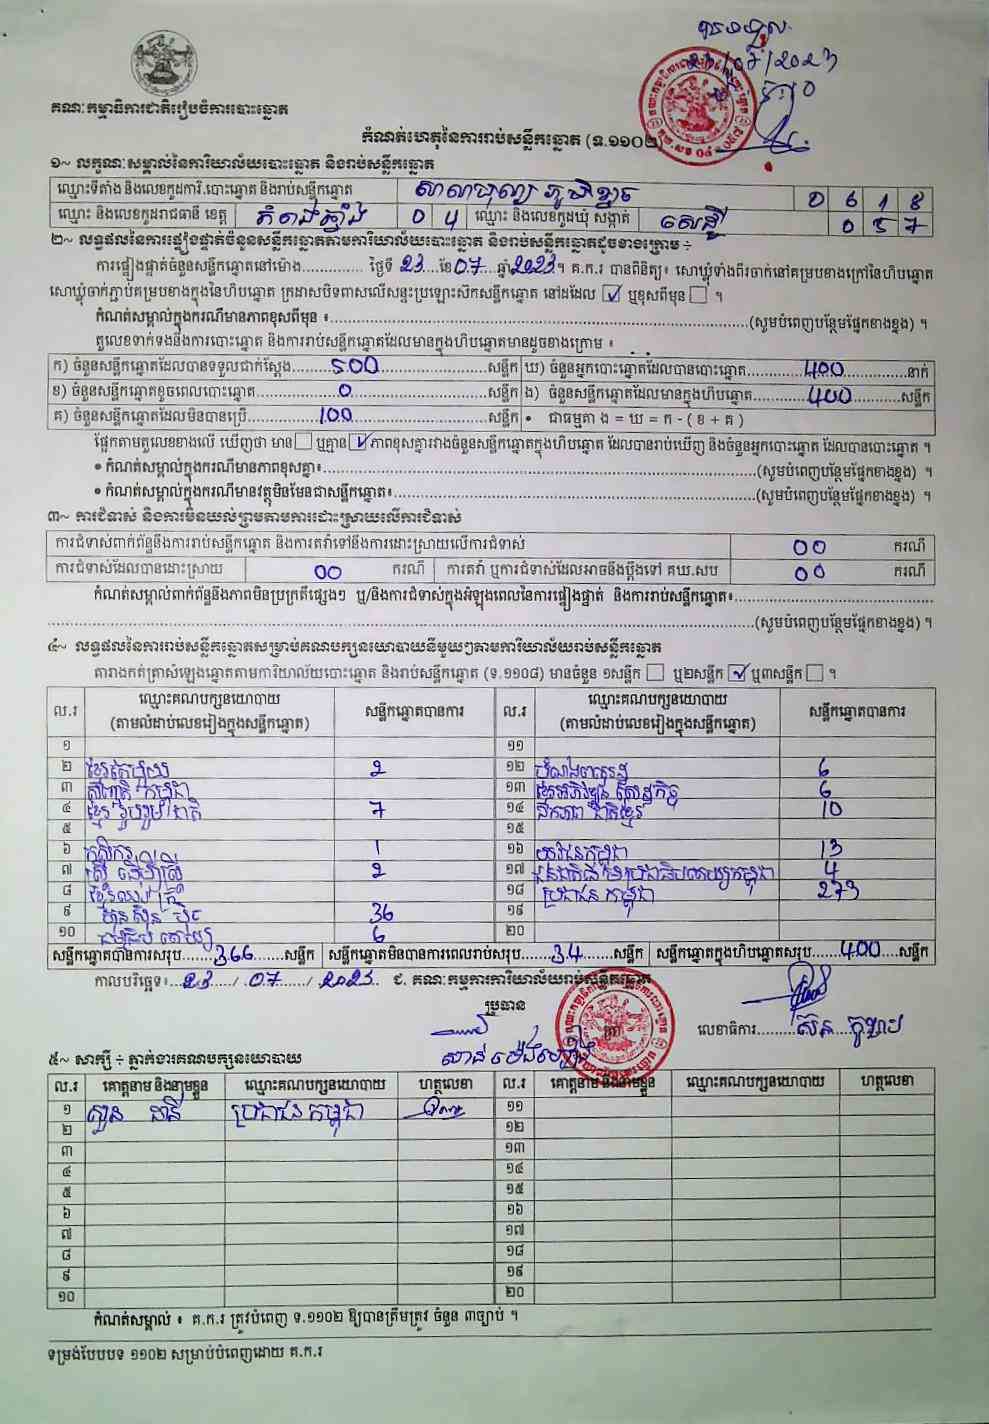 គណៈកម្មាធិការជាតិរៀបចំការបោះឆ្នោត
កំណត់ហេតុនៃការរាប់សន្លឹកឆ្នោត (ទ.១១០២)
១~ លក្ខណៈសម្គាល់នៃការិយាល័យបោះឆ្នោត និងរាប់សន្លឹកឆ្នោត
ឈ្មោះទីតាំង និងលេខកូដការិ.បោះឆ្នោត និងរាប់សន្លឹកឆ្នោត
ឈ្មោះ និងលេខកូដរាជធានី ខេត្ត កំពង់ឆ្នាំង 0 4 ឈ្មោះ និងលេខកូដឃុំ សង្កាត់ 0 5 7
២~ លទ្ធផលនៃការផ្ទៀងផ្ទាត់ចំនួនសន្លឹកឆ្នោតតាមការិយាល័យបោះឆ្នោត និងរាប់សន្លឹកឆ្នោតដូចខាងក្រោម ÷
ការផ្ទៀងផ្ទាត់ចំនួនសន្លឹកឆ្នោតនៅម៉ោង.............. ថ្ងៃទី 23 ខែ 07 ឆ្នាំ 2023 ។ គ.ក.រ បានពិនិត្យ៖ សោឃ្លុំទាំងពីរចាក់នៅគម្របខាងក្រៅនៃហិបឆ្នោត
សោឃ្លុំចាក់ភ្ជាប់គម្របខាងក្នុងនៃហិបឆ្នោត ក្រដាសបិទពាសលើសន្ទះប្រឡោះសឹកសន្លឹកឆ្នោត នៅដដែល ☑ ឬខុសពីមុន ☐ ។
កំណត់សម្គាល់ក្នុងករណីមានភាពខុសពីមុន ៖............(សូមបំពេញបន្ថែមផ្នែកខាងខ្នង) ។
តួលេខទាក់ទងនឹងការបោះឆ្នោត និងការរាប់សន្លឹកឆ្នោតដែលមានក្នុងហិបឆ្នោតមានដូចខាងក្រោម ៖
ក) ចំនួនសន្លឹកឆ្នោតដែលបានទទួលជាក់ស្តែង 500 សន្លឹក ឃ) ចំនួនអ្នកបោះឆ្នោតដែលបានបោះឆ្នោត 400 នាក់
ខ) ចំនួនសន្លឹកឆ្នោតខូចពេលបោះឆ្នោត 0 សន្លឹក ង) ចំនួនសន្លឹកឆ្នោតដែលមានក្នុងហិបឆ្នោត 400 សន្លឹក
គ) ចំនួនសន្លឹកឆ្នោតដែលមិនបានប្រើ 100 សន្លឹក • ជាធម្មតា ង = ឃ = ក - ( ខ + គ )
ផ្អែកតាមតួលេខខាងលើ ឃើញថា មាន ☐ ឬគ្មាន ☑ ភាពខុសគ្នារវាងចំនួនសន្លឹកឆ្នោតក្នុងហិបឆ្នោត ដែលបានរាប់ឃើញ និងចំនួនអ្នកបោះឆ្នោត ដែលបានបោះឆ្នោត ។
• កំណត់សម្គាល់ក្នុងករណីមានភាពខុសគ្នា៖............(សូមបំពេញបន្ថែមផ្នែកខាងខ្នង) ។
• កំណត់សម្គាល់ក្នុងករណីមានវត្ថុមិនមែនជាសន្លឹកឆ្នោត៖............(សូមបំពេញបន្ថែមផ្នែកខាងខ្នង) ។
៣~ ការជំទាស់ និងការមិនយល់ព្រមតាមការដោះស្រាយលើការជំទាស់
ការជំទាស់ពាក់ព័ន្ធនឹងការរាប់សន្លឹកឆ្នោត និងការតវ៉ាទៅនឹងការដោះស្រាយលើការជំទាស់ 00 ករណី
ការជំទាស់ដែលបានដោះស្រាយ 00 ករណី ការតវ៉ា ឬការជំទាស់ដែលអាចនឹងប្តឹងទៅ គឃ.សប 00 ករណី
កំណត់សម្គាល់ពាក់ព័ន្ធនឹងភាពមិនប្រក្រតីផ្សេងៗ ឬ/និងការជំទាស់ក្នុងអំឡុងពេលនៃការផ្ទៀងផ្ទាត់ និងការរាប់សន្លឹកឆ្នោត៖............
............(សូមបំពេញបន្ថែមផ្នែកខាងខ្នង) ។
៤~ លទ្ធផលនៃការរាប់សន្លឹកឆ្នោតសម្រាប់គណបក្សនយោបាយនីមួយៗតាមការិយាល័យរាប់សន្លឹកឆ្នោត
តារាងកត់ត្រាសំឡេងឆ្នោតតាមការិយាល័យបោះឆ្នោត និងរាប់សន្លឹកឆ្នោត (ទ.១១០៨) មានចំនួន ១សន្លឹក ☐ ឬ២សន្លឹក ☑ ឬ៣សន្លឹក ☐ ។
ល.រ ឈ្មោះគណបក្សនយោបាយ សន្លឹកឆ្នោតបានការ ល.រ ឈ្មោះគណបក្សនយោបាយ សន្លឹកឆ្នោតបានការ
(តាមលំដាប់លេខរៀងក្នុងសន្លឹកឆ្នោត) (តាមលំដាប់លេខរៀងក្នុងសន្លឹកឆ្នោត)
១ ១១
២ 2 ១២ 6
៣ ១៣ ខ្មែរអភិវឌ្ឍន៍ សេដ្ឋកិច្ច 6
៤ ខ្មែរ រួបរួមជាតិ 7 ១៤ ឯកភាព ជាតិខ្មែរ 10
៥ ១៥
៦ 1 ១៦ យុវជនកម្ពុជា 13
៧ ស្ត្រី ដើម្បីស្ត្រី 2 ១៧ 4
៨ ១៨ ប្រជាជន កម្ពុជា 273
៩ ហ្វ៊ុនស៊ិន ប៉ិច 36 ១៩
១០ 6 ២០
សន្លឹកឆ្នោតបានការសរុប 366 សន្លឹក សន្លឹកឆ្នោតមិនបានការពេលរាប់សរុប 34 សន្លឹក សន្លឹកឆ្នោតក្នុងហិបឆ្នោតសរុប 400 សន្លឹក
កាលបរិច្ឆេទ៖ 23 / 07 / 2023 ជ. គណៈកម្មការការិយាល័យរាប់សន្លឹកឆ្នោត
ប្រធាន
លេខាធិការ
៥~ សាក្សី ÷ ភ្នាក់ងារគណបក្សនយោបាយ
ល.រ គោត្តនាម និងនាមខ្លួន ឈ្មោះគណបក្សនយោបាយ ហត្ថលេខា ល.រ គោត្តនាម និងនាមខ្លួន ឈ្មោះគណបក្សនយោបាយ ហត្ថលេខា
១ ប្រជាជន កម្ពុជា ១១
២ ១២
៣ ១៣
៤ ១៤
៥ ១៥
៦ ១៦
៧ ១៧
៨ ១៨
៩ ១៩
១០ ២០
កំណត់សម្គាល់ ៖ គ.ក.រ ត្រូវបំពេញ ទ.១១០២ ឱ្យបានត្រឹមត្រូវ ចំនួន ៣ច្បាប់ ។
ទម្រង់បែបបទ ១១០២ សម្រាប់បំពេញដោយ គ.ក.រ